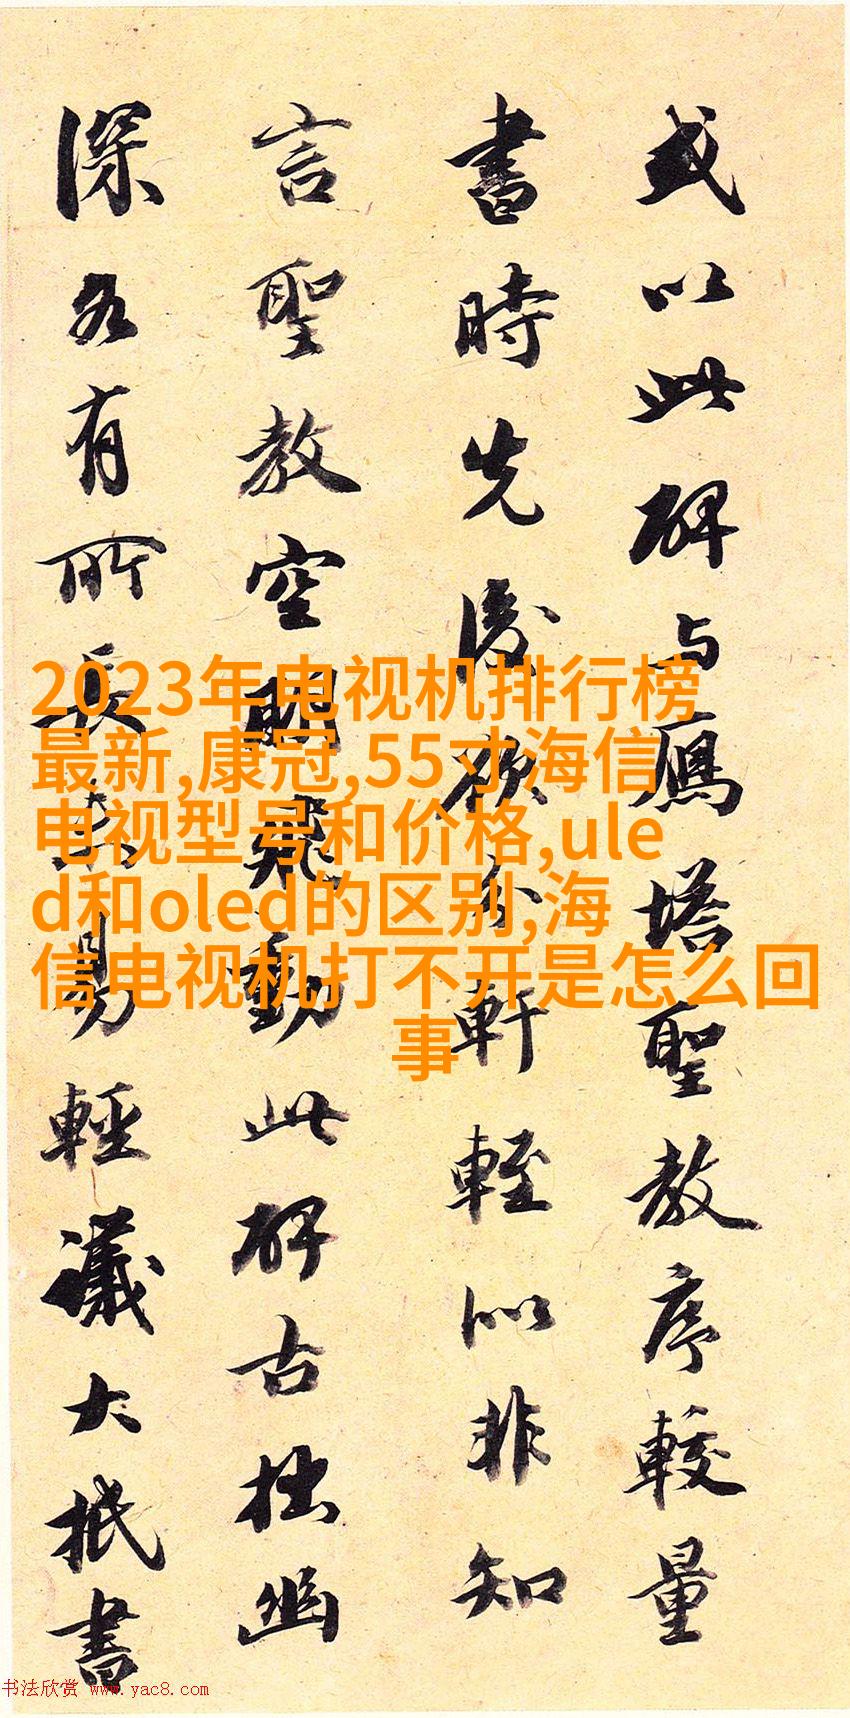 或以此碑与鴈塔聖教序較量
書時先後欲分軒輊似非知
言聖教空明飛動此碑古拙幽
深各有所長未易輕議大抵書
2023年电视机排行榜
最新,康冠,55寸海信
电视型号和价格,ule
d和oled的区别,海
信电视机打不开是怎么回
事
书法欣赏 www.yac8.com